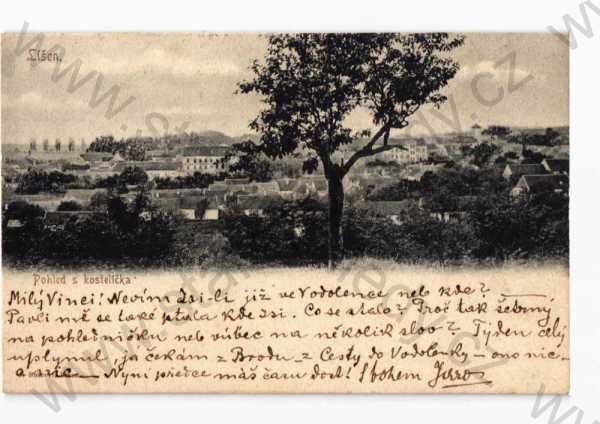 Líšeň.
Pohled s kostelíčka
Milý Vinci! Nevím zsi-li již ve Vodolence neb kde?
Pavli mě se také ptala kde zsi. Co se stalo? Proč tak šetrný
na pohledničku neb vůbec na několik slov? Týden celý
uplynul, já čekám z Brodu, z Cesty do Vodolenky – ono nic-
a nic – Nyní přece máš času dost! S bohem